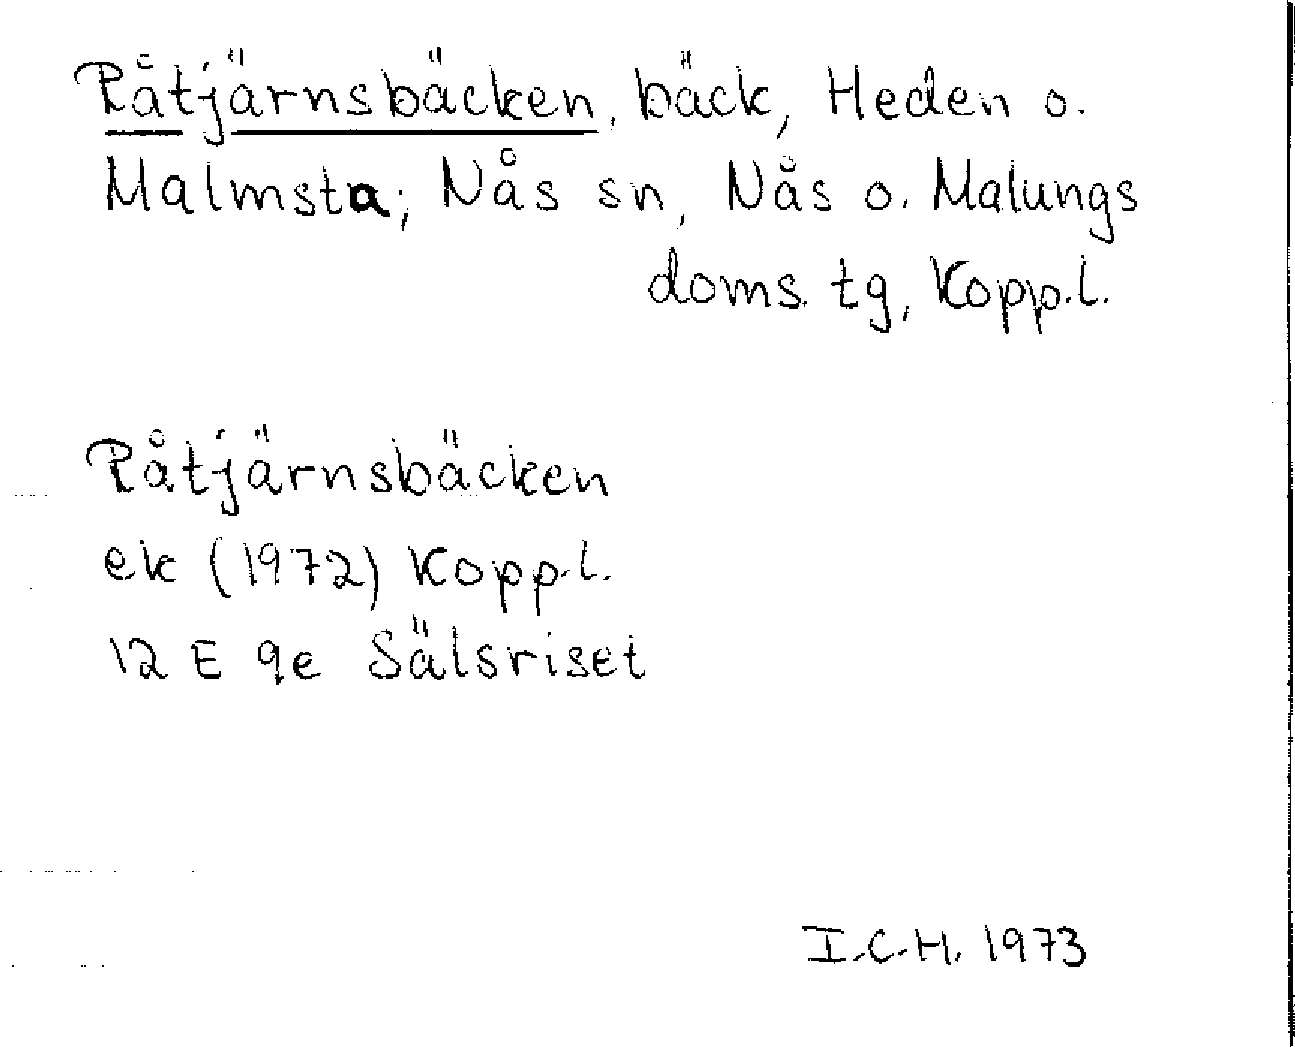 Råtjärnsbäcken, bäck, Heden o.
Malmsta; Nås sn, Nås o. Malungs
doms. tg, Kopp.l.
Råtjärnsbäcken
ek (1972) Kopp.l.
12 E 9e Sälsriset
I.C.H. 1973